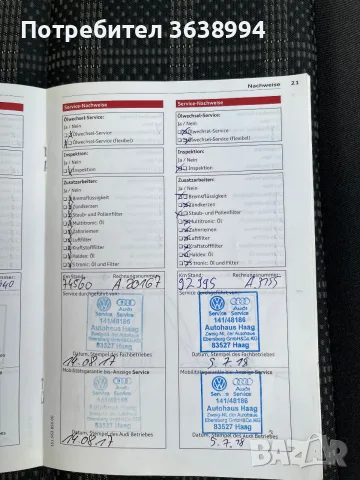 Потребител 3638994
Nachweise 23
Service-Nachweise
Ölwechsel-Service:
Ja / Nein
Ölwechsel-Service
Ölwechsel-Service (flexibel)
Inspektion:
Ja / Nein
Inspektion
Zusatzarbeiten:
Ja / Nein
Bremsflüssigkeit
Zündkerzen
Staub- und Pollenfilter
Multitronic: Öl
Zahnriemen
Luftfilter
Kraftstofffilter
Haldex: Öl
S tronic: Öl und Filter
Km Stand: Rechnungsnummer:
74560 A 20167
Service durchgeführt von:
Service Service
141/48186
Autohaus Haag
Zwng.ML der Autohaus
Ebersberg GmbH&Co.KG
83527 Haag
14.08.17
Datum, Stempel des Fachbetriebes
Mobilitätsgarantie bei-Anzeige Service
141/48186
Autohaus Haag
Zwng.ML der Autohaus
Ebersberg GmbH&Co.KG
83527 Haag
14.08.17
Datum, Stempel des Audi Betriebes
Service-Nachweise
Ölwechsel-Service:
Ja / Nein
Ölwechsel-Service
Ölwechsel-Service (flexibel)
Inspektion:
Ja / Nein
Inspektion
Zusatzarbeiten:
Ja / Nein
Bremsflüssigkeit
Zündkerzen
Staub- und Pollenfilter
Multitronic: Öl
Zahnriemen
Luftfilter
Kraftstofffilter
Haldex: Öl
S tronic: Öl und Filter
Km Stand: Rechnungsnummer:
92995
Service durchgeführt von:
Service Service
141/48186
Autohaus Haag
Zwng.ML der Autohaus
Ebersberg GmbH&Co.KG
83527 Haag
5.7.18
Datum, Stempel des Fachbetriebes
Mobilitätsgarantie bei-Anzeige Service
Service Service
141/48186
Autohaus Haag
Zwng.ML der Autohaus
Ebersberg GmbH&Co.KG
83527 Haag
5.7.18
Datum, Stempel des Audi Betriebes
bazar